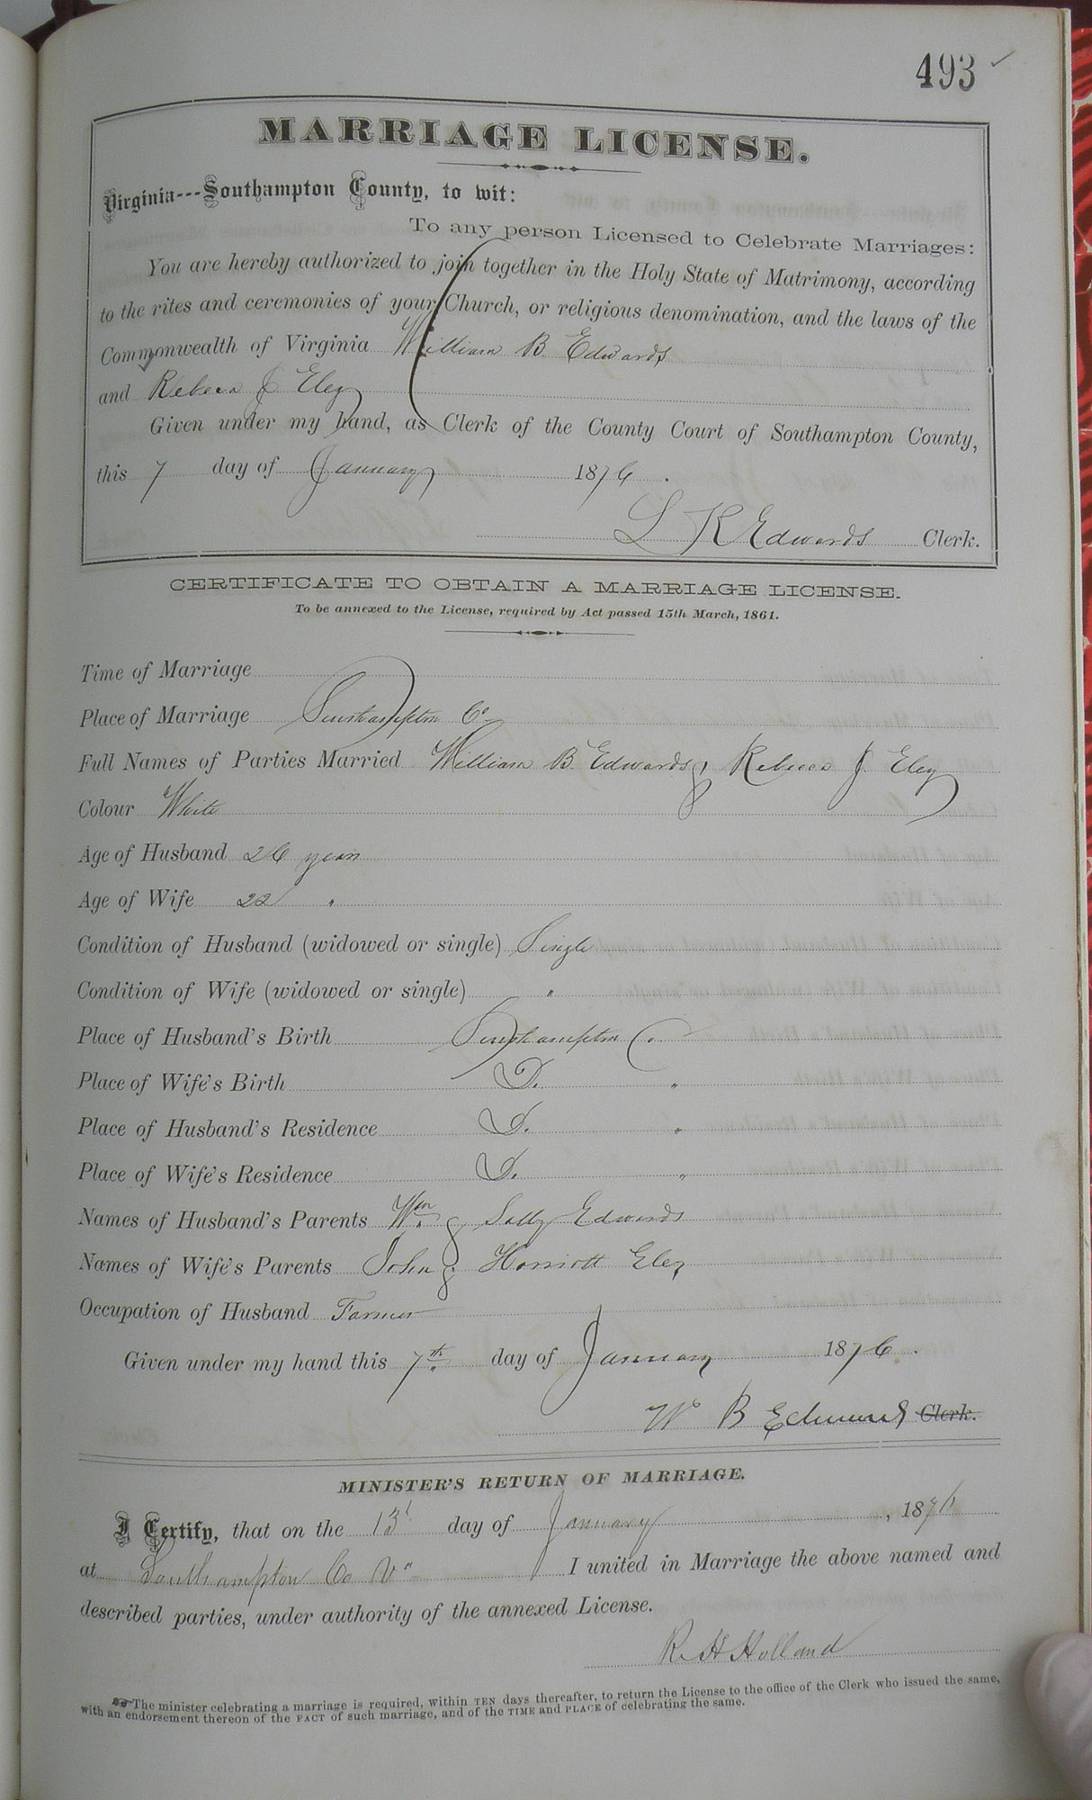 493
MARRIAGE LICENSE.
Virginia---Southampton County, to wit:
To any person Licensed to Celebrate Marriages:
You are hereby authorized to join together in the Holy State of Matrimony, according
to the rites and ceremonies of your Church, or religious denomination, and the laws of the
Commonwealth of Virginia William B. Edwards
and Rebecca J. Eley
Given under my hand, as Clerk of the County Court of Southampton County,
this 7 day of January 1876.
L R Edwards Clerk.
CERTIFICATE TO OBTAIN A MARRIAGE LICENSE.
To be annexed to the License, required by Act passed 15th March, 1861.
Time of Marriage
Place of Marriage Southampton Co
Full Names of Parties Married William B. Edwards & Rebecca J. Eley
Colour White
Age of Husband 26 years
Age of Wife 22 "
Condition of Husband (widowed or single) Single
Condition of Wife (widowed or single) "
Place of Husband's Birth Southampton Co.
Place of Wife's Birth D. "
Place of Husband's Residence D. "
Place of Wife's Residence D. "
Names of Husband's Parents Wm. & Sally Edwards
Names of Wife's Parents John & Harriott Eley
Occupation of Husband Farmer
Given under my hand this 7th day of January 1876.
W B Edwards Clerk.
MINISTER'S RETURN OF MARRIAGE.
I Certify, that on the 13 day of January, 1876
at Southampton Co Va I united in Marriage the above named and
described parties, under authority of the annexed License.
R. H Holland
The minister celebrating a marriage is required, within TEN days thereafter, to return the License to the office of the Clerk who issued the same,
with an endorsement thereon of the FACT of such marriage, and of the TIME and PLACE of celebrating the same.